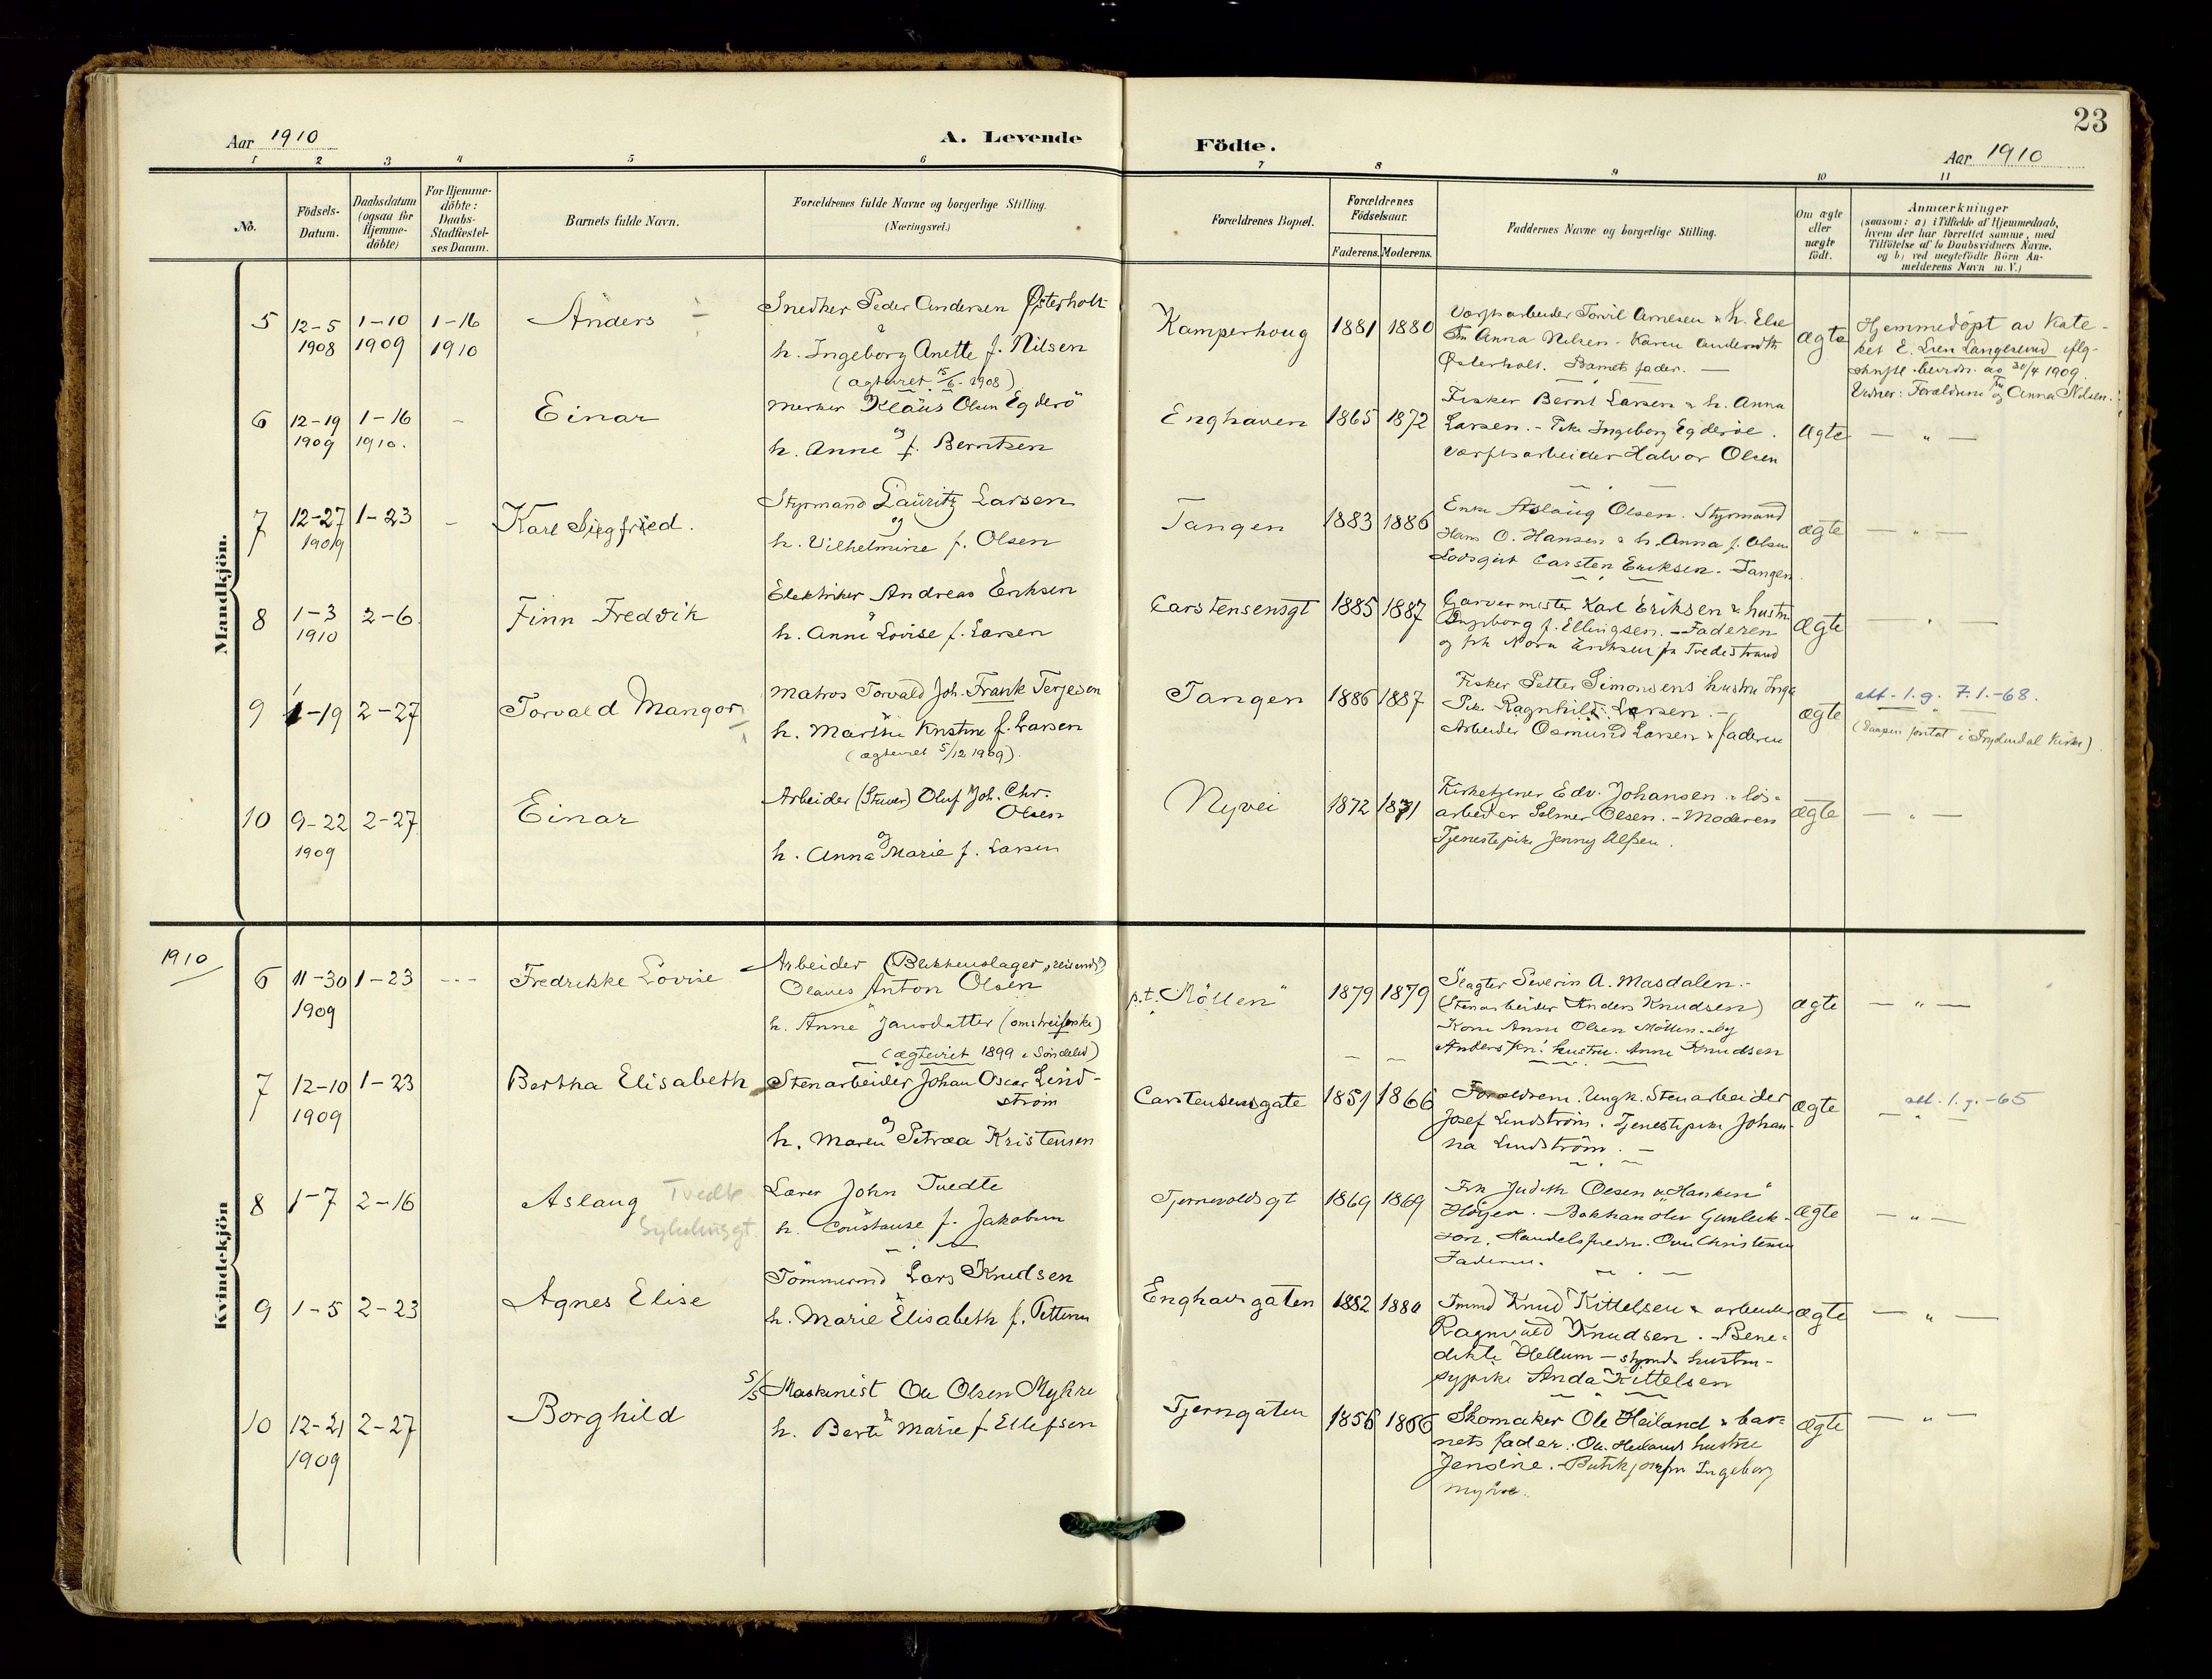 23
Aar 1910
A. Levende
Födte.
Aar 1910
1 2 3 4 5 6 7 8 9 10 11
No.
Födsels-
Datum.
Daabsdatum
(ogsaa for
Hjemme-
döbte)
For Hjemme-
döbte:
Daabs-
Stadfæstel-
ses Datum.
Barnets fulde Navn.
Forældrenes fulde Navne og borgerlige Stilling.
(Næringsvei.)
Forældrenes Bopæl.
Forældrenes
Födselsaar.
Faderens. Moderens.
Faddernes Navne og borgerlige Stilling.
Om ægte
eller
uægte
födt.
Anmærkninger
(saasom: a) i Tilfælde af Hjemmedaab,
hvem der har forrettet samme, med
Tilföielse af to Daabsvidners Navne,
og b) ved uægtefödte Börn An-
melderens Navn m. V.)
Mandkjön.
5
12-5
1908
1-10
1909
1-16
1910
Anders
Snedker Peder Andersen Østerholt
&
h. Ingeborg Anette f. Nilsen
(ægteviet 15/6-1908)
Kamperhoug
1881 1880
Værftsarbeider Torvil Arnesen & h. Else
Fru Anna Nilsen. Karen
Østerholt. Barnets fader. —
ægte
Hjemmedöpt av Kate-
ket E. Lien Langesund iflg.
skriftl. av 30/4 1909.
Vidner: Forældrene og Fru Anna Nilsen.
6
12-19
1909
1-16
1910.
-
Einar
Klaus Olsen Egderö
og
h. Anne f. Berntsen
Enghaven
1865 1872
Fisker Bernt Larsen & h. Anna
Larsen. - Pike Ingeborg Egderöe.
Værftsarbeider Halvor Olsen
ægte
— " —
7
12-27
1909
1-23
-
Karl Siegfried.
Styrmand Lauritz Larsen
og
h. Vilhelmine f. Olsen
Tangen
1883 1886
Enke Aslaug Olsen. Styrmand
Hans O. Hansen & h. Anna f. Olsen
Lodsgut Carsten Eriksen. Tangen.
ægte
— " —
8
1-3
1910
2-6
Finn Fredrik
Elektriker Andreas Eriksen
&
h. Anne Lovise f. Larsen
Carstensensgt
1885 1887
Garvermester Karl Eriksen & hustru
Ingeborg f. Ellingsen. - Faderen
og frk Nora Eriksen fra Tvedestrand
ægte
— " —
9
1-19
2-27
Torvald Mangor
Matros Torvald Joh. Frank Terjesen
&
h. Marthe Kristine f. Larsen
(ægteviet 5/12 1909).
Tangen
1886 1887
Fisker Petter Simonsens hustru Inga
Pike Ragnhild Larsen. -
Arbeider Osmund Larsen & faderen
ægte
att. 1.g. 7.1.-68.
— " —
(Daapen i Frydendal Kirke).
10
9-22
1909
2-27
Einar
Arbeider (Stuer) Oluf Joh. Chr.
Olsen
og
h. Anna Marie f. Larsen
Nyvei
1872 1871
Kirketjener Edv. Johansen. - lös-
arbeider Selmer Olsen. - Moderen
Tjenestepike Jenny Alfsen.
ægte
— " —
1910
Kvindekjön
6
11-30
1909
1-23
---
Fredrikke Lovise
Arbeider (Blikkenslager, reisende)
Olaves Anton Olsen
h. Anne Jansdatter (omstreiferske)
(ægteviet 1899 i Söndeled)
p.t. "Möllen"
1879 1879
Slagter Severin A. Masdalen. -
(Stenarbeider Anders Knudsen)
Kone Anne Olsen Möllen. og
Anders Kn! hustru. Anne Knudsen
ægte
— " —
7
12-10
1909
1-23
Bertha Elisabeth
Stenarbeider Johan Oscar Lind-
ström
og
h. Maren Petræa Kristensen
Carstensensgate
1851 1866
Forældrene. Ungk. Stenarbeider
Josef Lindström. Tjenestepike Johan-
na Lindström. -
ægte
att. 1.g. -65
— " —
8
1-7
2-16
Aslaug Tvedte
Lærer John Tvedte
h. Constanse f. Jakobsen
Tjernevoldsgt
1869 1869
Frk Judith Olsen "Hauken"
Höyer. - Bokhandler Gunleik-
son. Handelsfuldm. Ove Christensen
Faderen.
ægte
— " —
9
1-5
2-23
Agnes Elise
Tömmermd Lars Knudsen
&
h. Marie Elisabeth f. Pettersen
Enghavsgaten
1882 1880
Tmmd Knud Kittelsen & arbeider
Ragnvald Knudsen. - Bene-
dikte Hellum - styrmds hustru -
sypike Anda Kittelsen
ægte
— " —
10
12-21
1909
2-27
Borghild
S/S Maskinist Ole Olsen Myhre
&
h. Berte Marie f. Ellefsen
Tjerngaten
1856 1866
Skomaker Ole Heiland & bar-
nets fader. Ole Heilands hustru
Jensine. - Butikjomfru Ingeborg
Myhre.
ægte
— " —